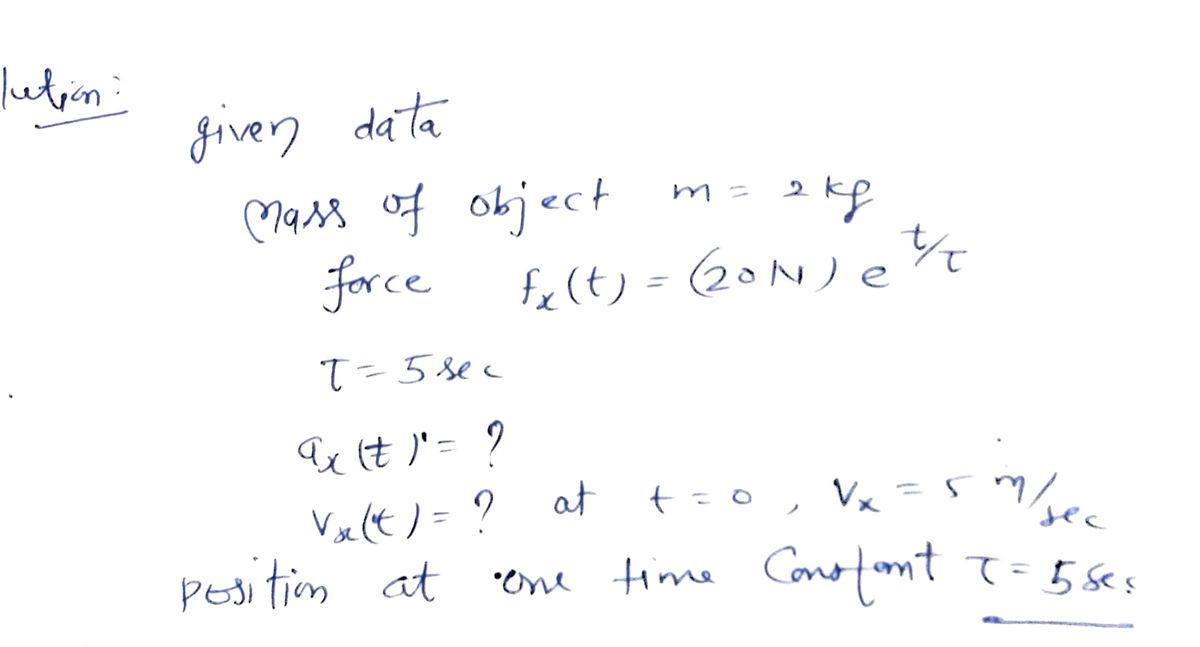 lution:
given data
Mass of object m = 2 kg
force fx(t) = (20N) e t/τ
τ = 5 sec
ax(t) = ?
Vx(t) = ? at t = 0, Vx = 5 m/sec
position at one time Constant τ = 5 sec